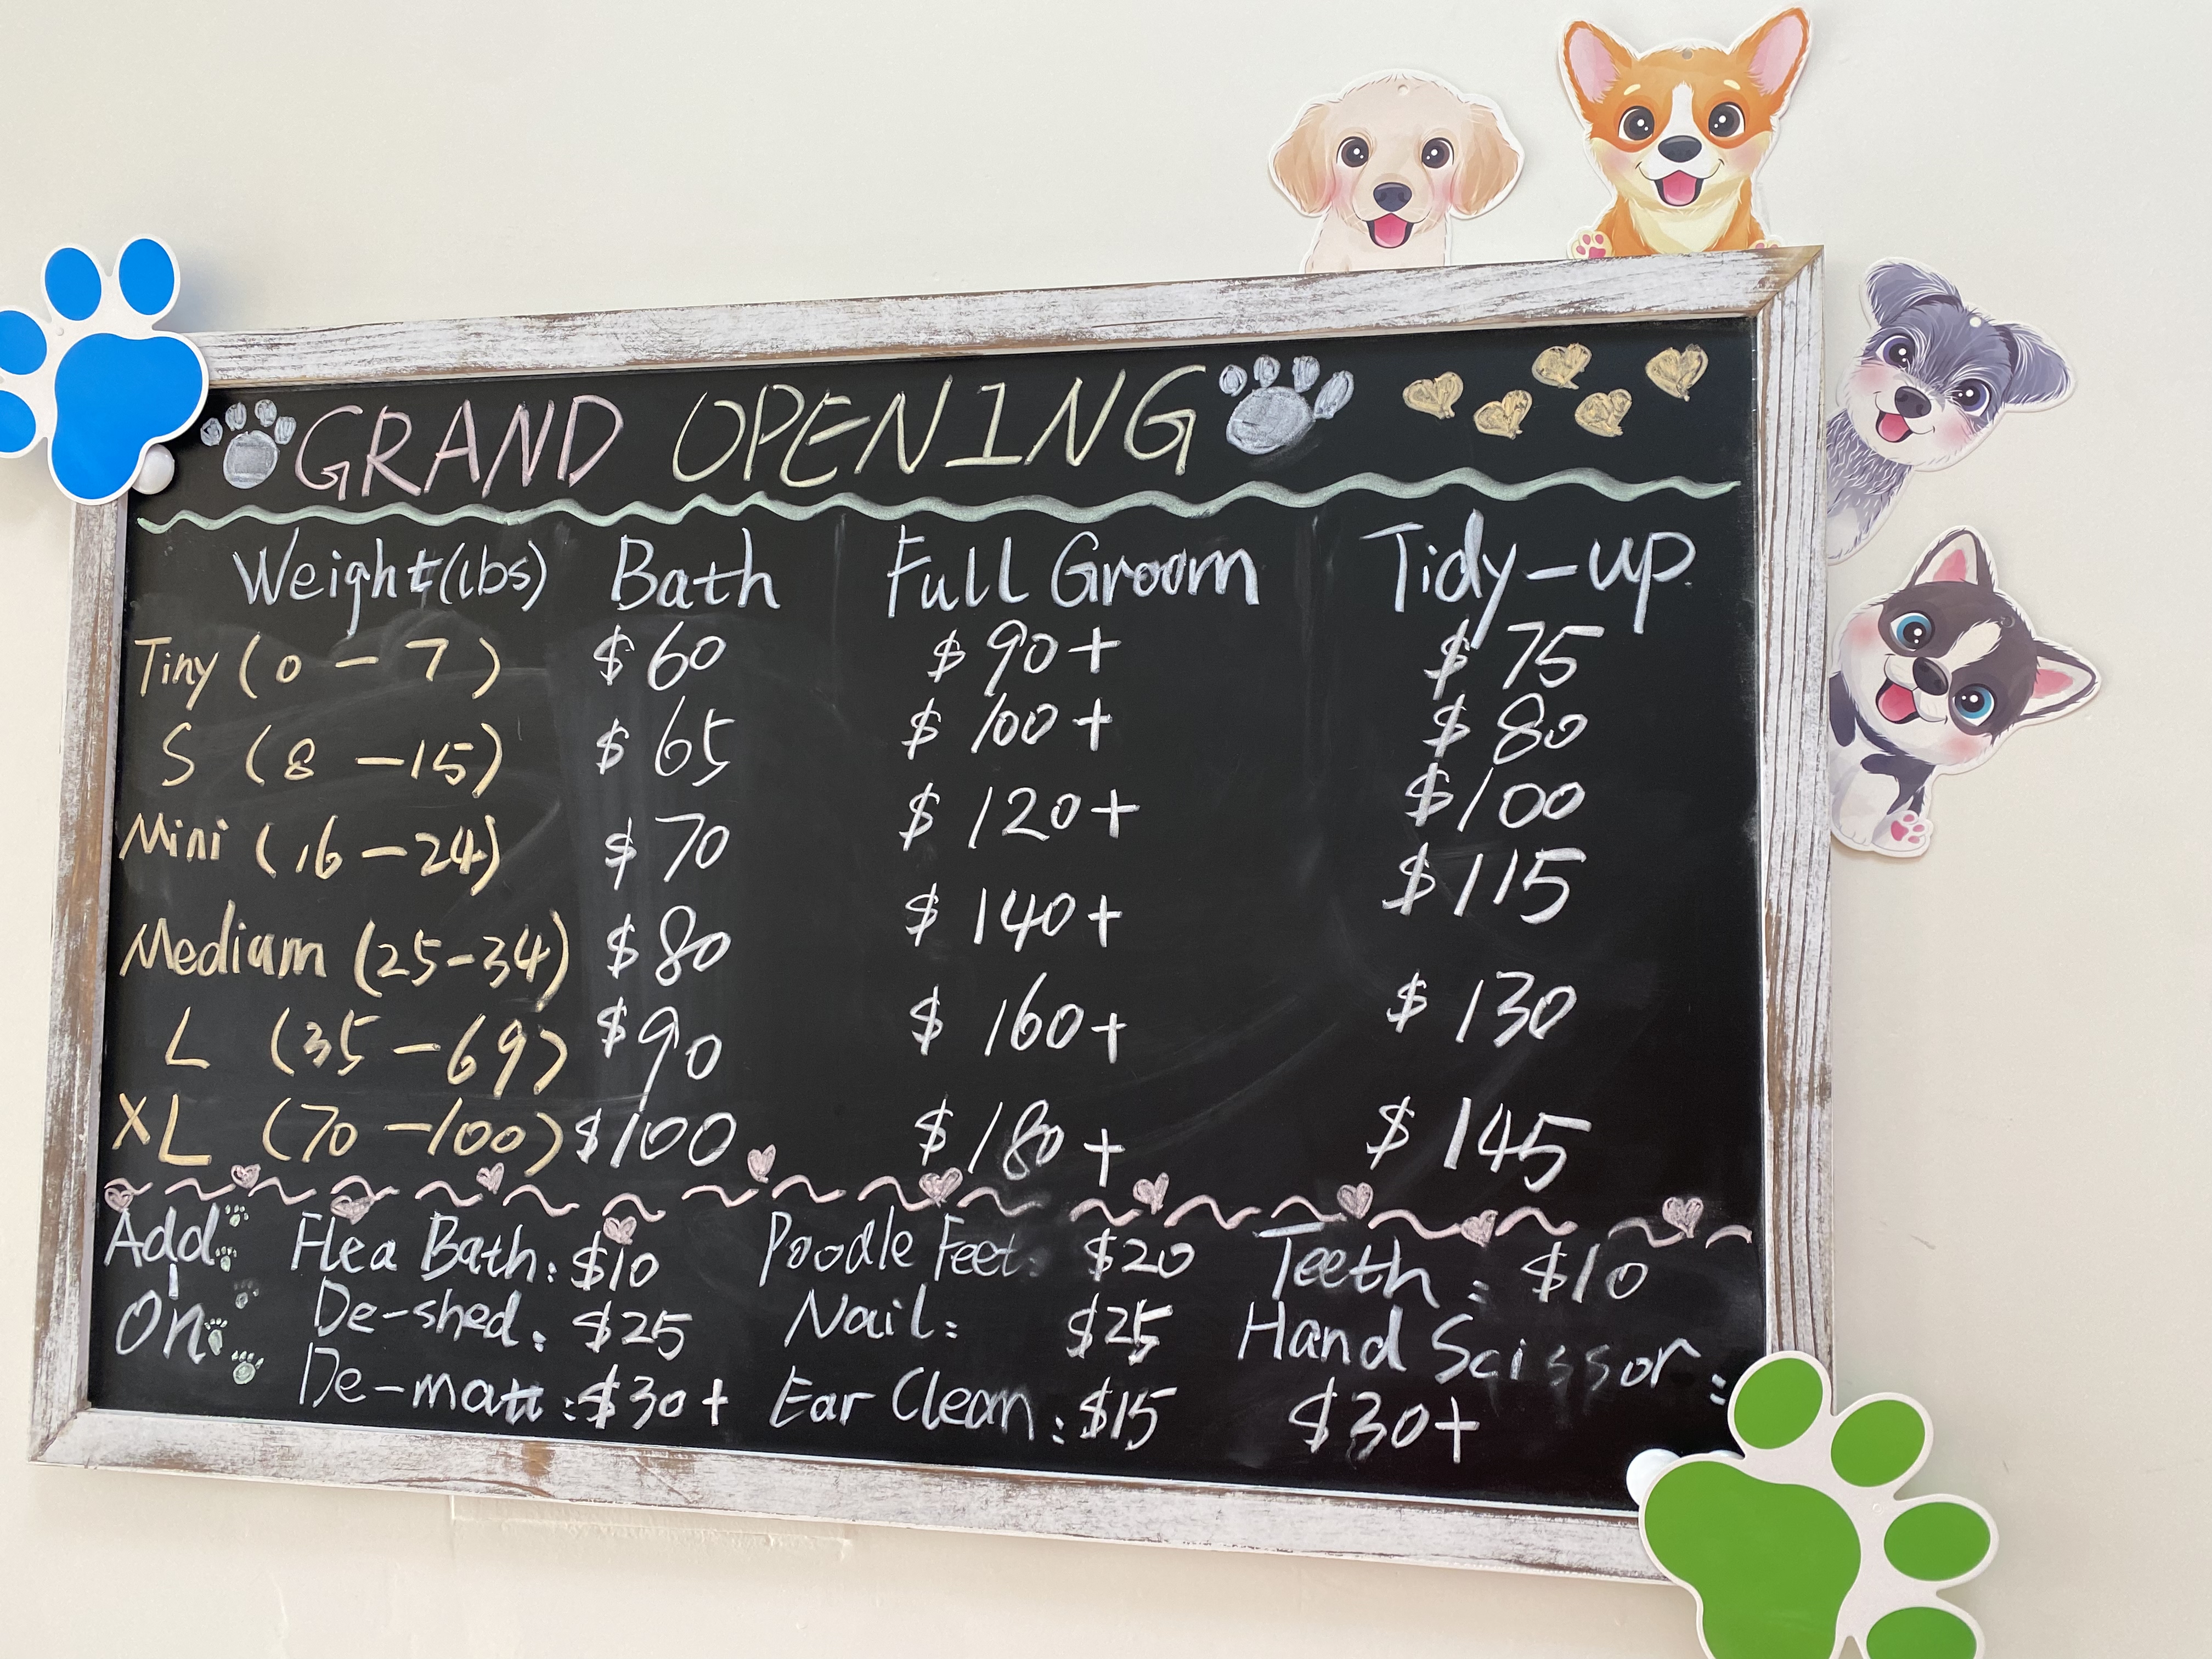 GRAND OPENING
Weight(lbs) Bath Full Groom Tidy-up
Tiny (0 - 7) $60 $90+ $75
S (8 - 15) $65 $100+ $80
Mini (16 - 24) $70 $120+ $100
Medium (25-34) $80 $140+ $115
L (35 - 69) $90 $160+ $130
XL (70 - 100) $100 $180+ $145
Add Flea Bath: $10 Poodle Feet: $20 Teeth: $10
On De-shed: $25 Nail: $25 Hand Scissor:
De-matt: $30+ Ear Clean: $15 $30+